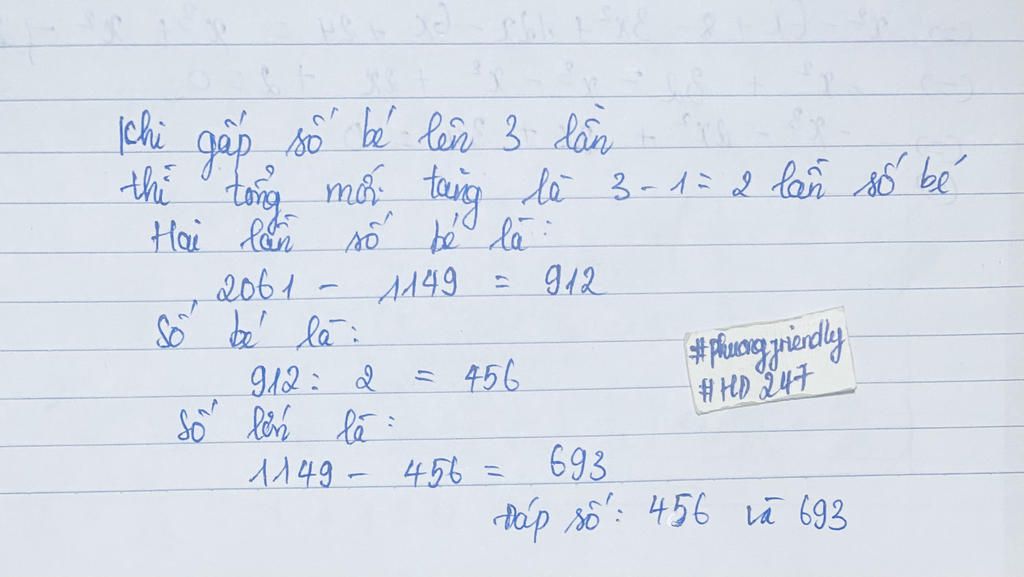 Khi gấp số bé lên 3 lần
thì tổng mới tăng là 3 - 1 = 2 lần số bé
Hai lần số bé là:
2061 - 1149 = 912
Số bé là:
912 : 2 = 456
Số lớn là:
1149 - 456 = 693
Đáp số: 456 và 693
#phuongfriendly
#HD 247